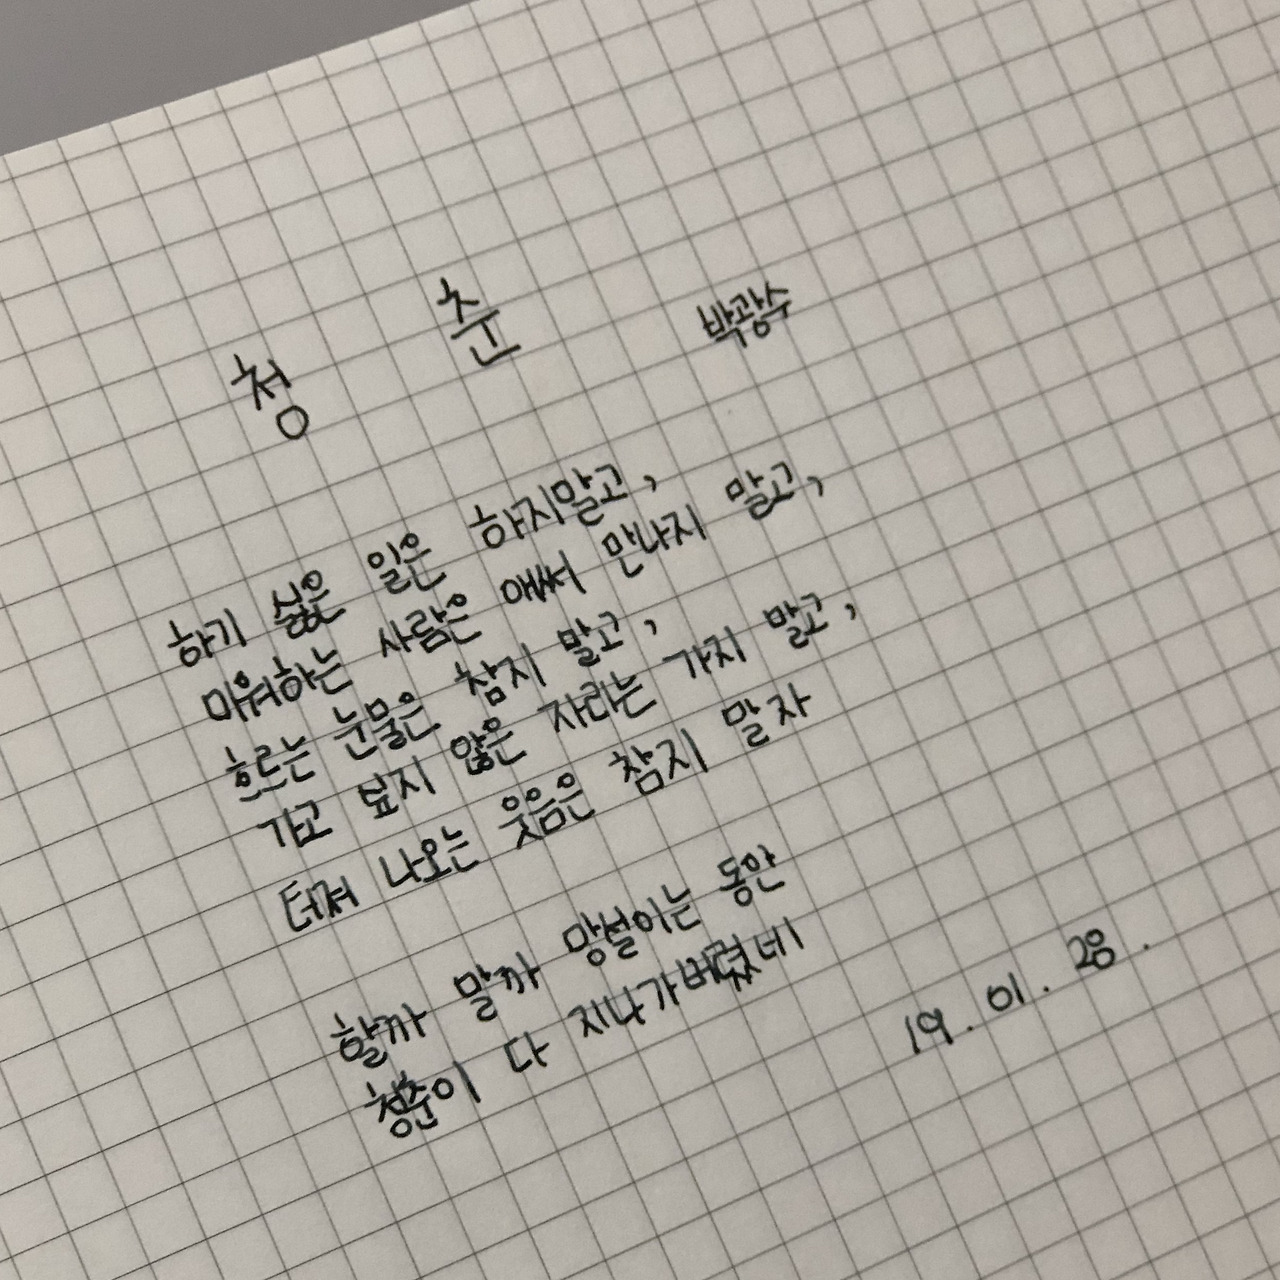 청 춘 박광수
하기 싫은 일은 하지말고,
미워하는 사람은 애써 만나지 말고,
흐르는 눈물은 참지 말고,
가고 싶지 않은 자리는 가지 말고,
터져 나오는 웃음은 참지 말자
할까 말까 망설이는 동안
청춘이 다 지나가버렸네
19. 01. 28.